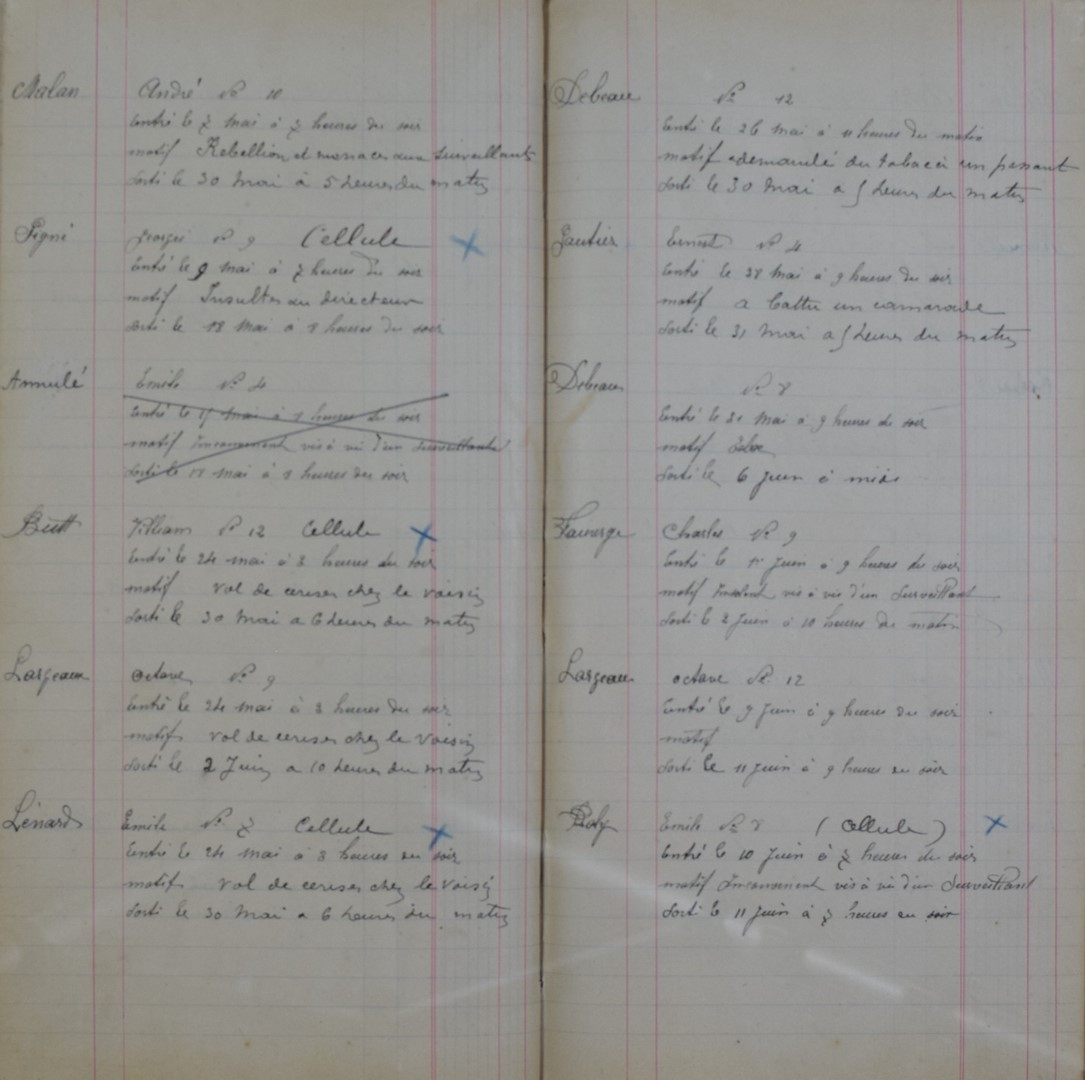 Malan André No 10
Entré le 7 Mai à 7 heures du soir
motif Rebellion et menaces aux surveillants
Sorti le 30 Mai à 5 heures du matin
Pigné Georges No 9 Cellule
Entré le 9 Mai à 7 heures du soir
motif Insultes au directeur
Sorti le 18 Mai à 8 heures du soir
Annulé Emile No 4
Entré le 17 Mai à heures du soir
motif Inconvenant vis à vis d'un Surveillant
Sorti le 18 mai à 8 heures du soir
Butt William No 12 Cellule
Entré le 24 mai à 3 heures du soir
motif vol de cerises chez le voisin
Sorti le 30 Mai a 6 heures du matin
Largeau octave No 9
Entré le 24 mai à 3 heures du soir
motifs vol de cerises chez le voisin
Sorti le 2 Juin a 10 heures du matin
Lénard Emile No 7 Cellule
Entré le 24 mai à 3 heures du soir
motifs vol de cerises chez le voisin
Sorti le 30 Mai a 6 heures du matin
Debeau No 12
Entré le 26 Mai à 11 heures du matin
motif a demandé du tabac à un passant
Sorti le 30 Mai a 5 heures du matin
Gautier Ernest No 4
Entré le 28 Mai à 9 heures du soir
motif a battu un camarade
Sorti le 31 Mai a 5 heures du matin
Debeau No 8
Entré le 31 Mai à 9 heures du soir
motif
Sorti le 6 Juin à midi
Fauverge Charles No 9
Entré le 1er Juin à 9 heures du soir
motif Insolent vis à vis d'un Surveillant
Sorti le 2 Juin à 10 heures du matin
Largeau octave No 12
Entré le 9 Juin à 9 heures du soir
motif
Sorti le 11 Juin à 9 heures du soir
Roby Emile No 8 (Cellule)
Entré le 10 Juin à 7 heures du soir
motif Inconvenient vis à vis d'un Surveillant
Sorti le 11 Juin à 7 heures du soir